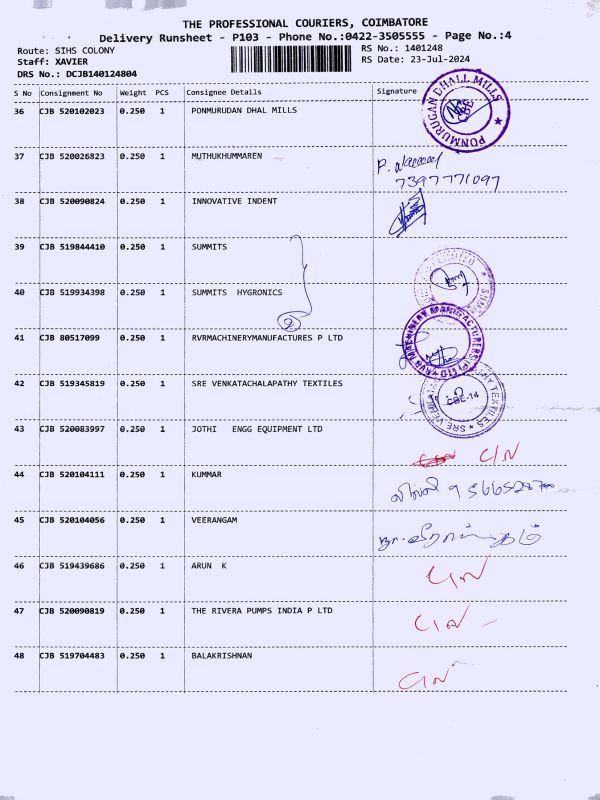 THE PROFESSIONAL COURIERS, COIMBATORE
Delivery Runsheet - P103 - Phone No.:0422-3505555 - Page No.:4
Route: SIHS COLONY RS No.: 1401248
Staff: XAVIER RS Date: 23-Jul-2024
DRS No.: DCJB140124804
S No Consignment No Weight PCS Consignee Details Signature
36 CJB 520102023 0.250 1 PONMURUDAN DHAL MILLS
PONMURUGAN DHALL MILLS
37 CJB 520026823 0.250 1 MUTHUKHUMMAREN
7397771097
38 CJB 520090824 0.250 1 INNOVATIVE INDENT
39 CJB 519844410 0.250 1 SUMMITS
40 CJB 519934398 0.250 1 SUMMITS HYGRONICS
2
41 CJB 80517099 0.250 1 RVRMACHINERYMANUFACTURES P LTD
RVR MACHINERY MANUFACTURERS (P) LTD
42 CJB 519345819 0.250 1 SRE VENKATACHALAPATHY TEXTILES
CBE-14
43 CJB 520083997 0.250 1 JOTHI ENGG EQUIPMENT LTD
C/N
44 CJB 520104111 0.250 1 KUMMAR
45 CJB 520104056 0.250 1 VEERANGAM
46 CJB 519439686 0.250 1 ARUN K
C/N
47 CJB 520090819 0.250 1 THE RIVERA PUMPS INDIA P LTD
C/N
48 CJB 519704483 0.250 1 BALAKRISHNAN
C/N